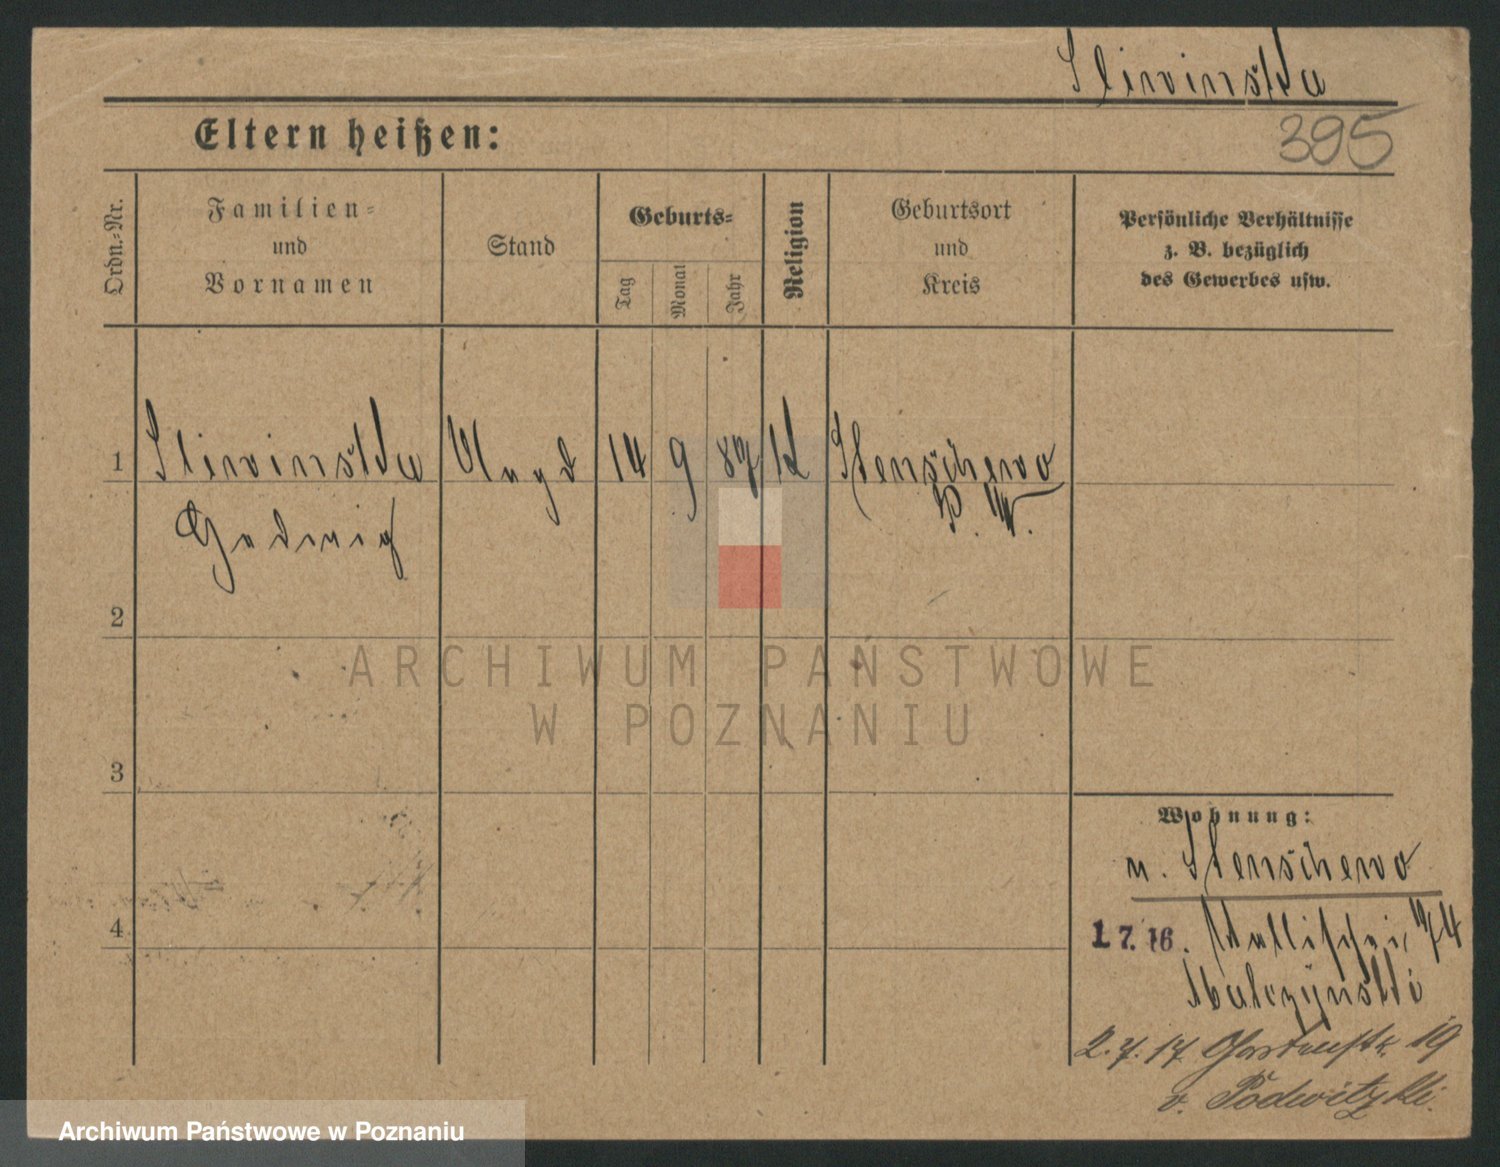 Sliwinska
395
Eltern heißen:
Ordn.=Nr.
Familien=
und
Vornamen
Stand
Geburts=
Tag
Monat
Jahr
Religion
Geburtsort
und
Kreis
Persönliche Verhältnisse
z. B. bezüglich
des Gewerbes usw.
1 Sliwinska Magd 14 9 87 K Stenschewo
Hedwig P. W.
2
ARCHIWUM PAŃSTWOWE
W POZNANIU
3
Wohnung:
n. Stenschewo
4
1 7. 16. Wallischei 74
Walczynski
2.7.17 Gartenstr. 19
v. Podwitzki.
Archiwum Państwowe w Poznaniu